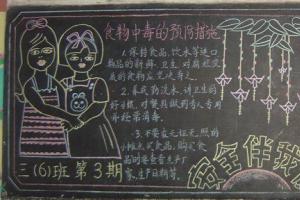 食物中毒的预防措施
1.保持食品、饮水等进口
物品的新鲜、卫生,对腐烂变
质的食物应坚决弃之。
2.养成勤洗水,讲卫生的
好习惯,对餐具做到专人专用
并经常消毒。
3.不要在无证无照的
小摊点买食品,购买食
品时要查看生产厂
家、生产日期等。
三(6)班 第3期
安全伴我